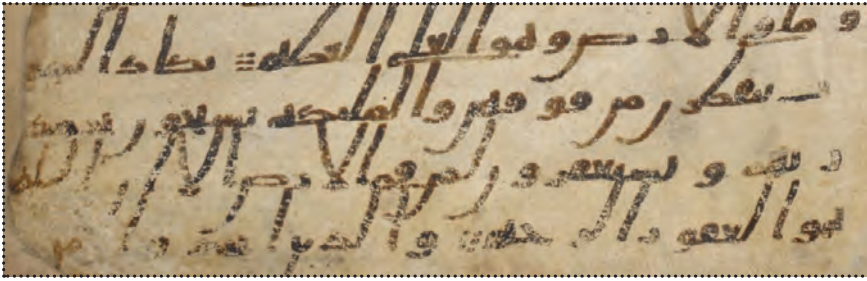 و ما في الارض وهو العلي العظيم تكاد السمو
ت يتفطرن من فوقهن والملئكه يسبحون بحمد
ربهم و يستغفرون لمن في الارض الا ان الله
هو الغفور الرحيم والذين اتخذوا من